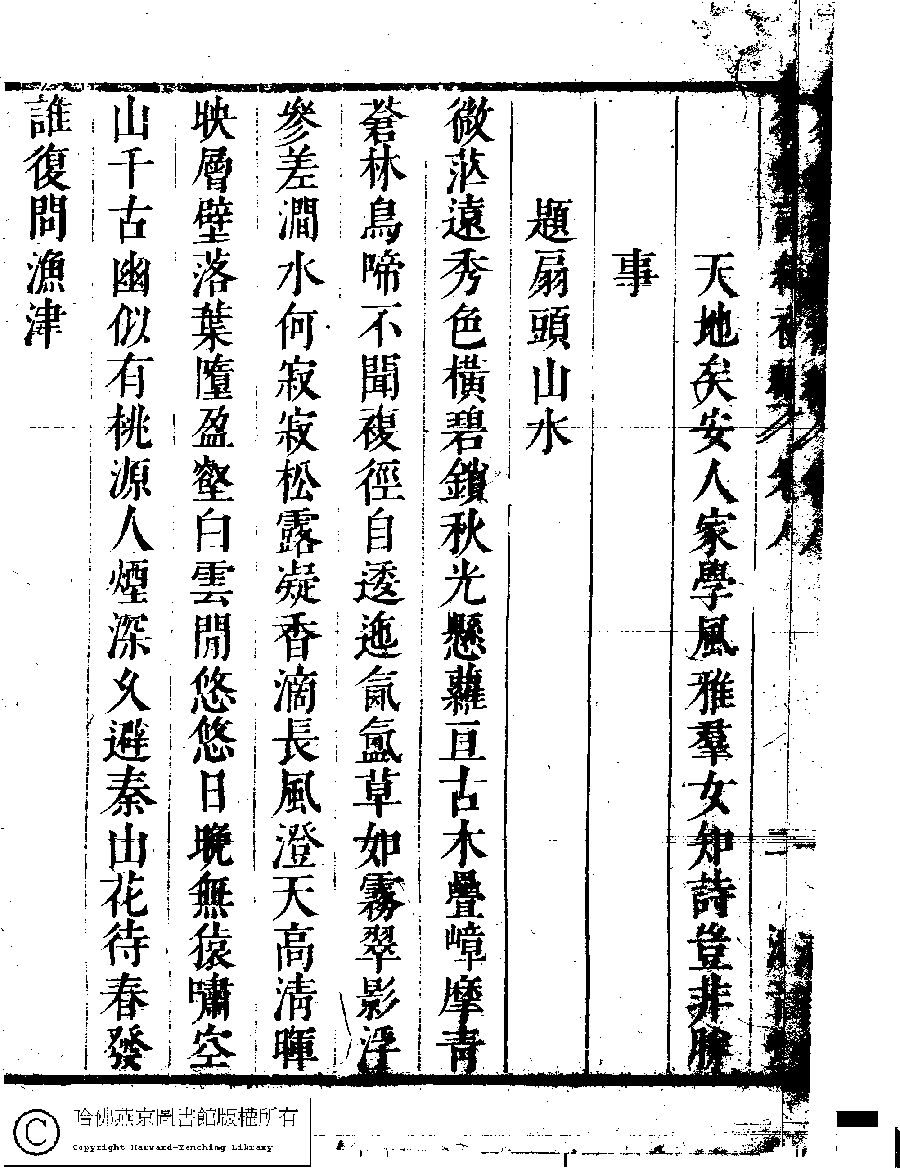 天地矣安人家學風雅羣女知詩豈非勝
事
題扇頭山水
微茫遠秀色橫碧鎖秋光懸蘿亘古木疊嶂摩青
蒼林鳥啼不聞複徑自逶迤氤氳草如霧翠影浮
參差澗水何寂寂松露凝香滴長風澄天高清暉
映層壁落葉墮盈壑白雲閒悠悠日晚無猿嘯空
山千古幽似有桃源人煙深久避秦山花待春發
誰復問漁津
哈佛燕京圖書館版權所有
Copyright Harvard-Yenching Library